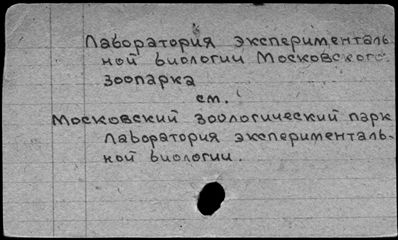 Лаборатория эксперименталь
ной биологии Московского
зоопарка
см.
Московский зоологический парк
Лаборатория эксперименталь-
ной биологии.